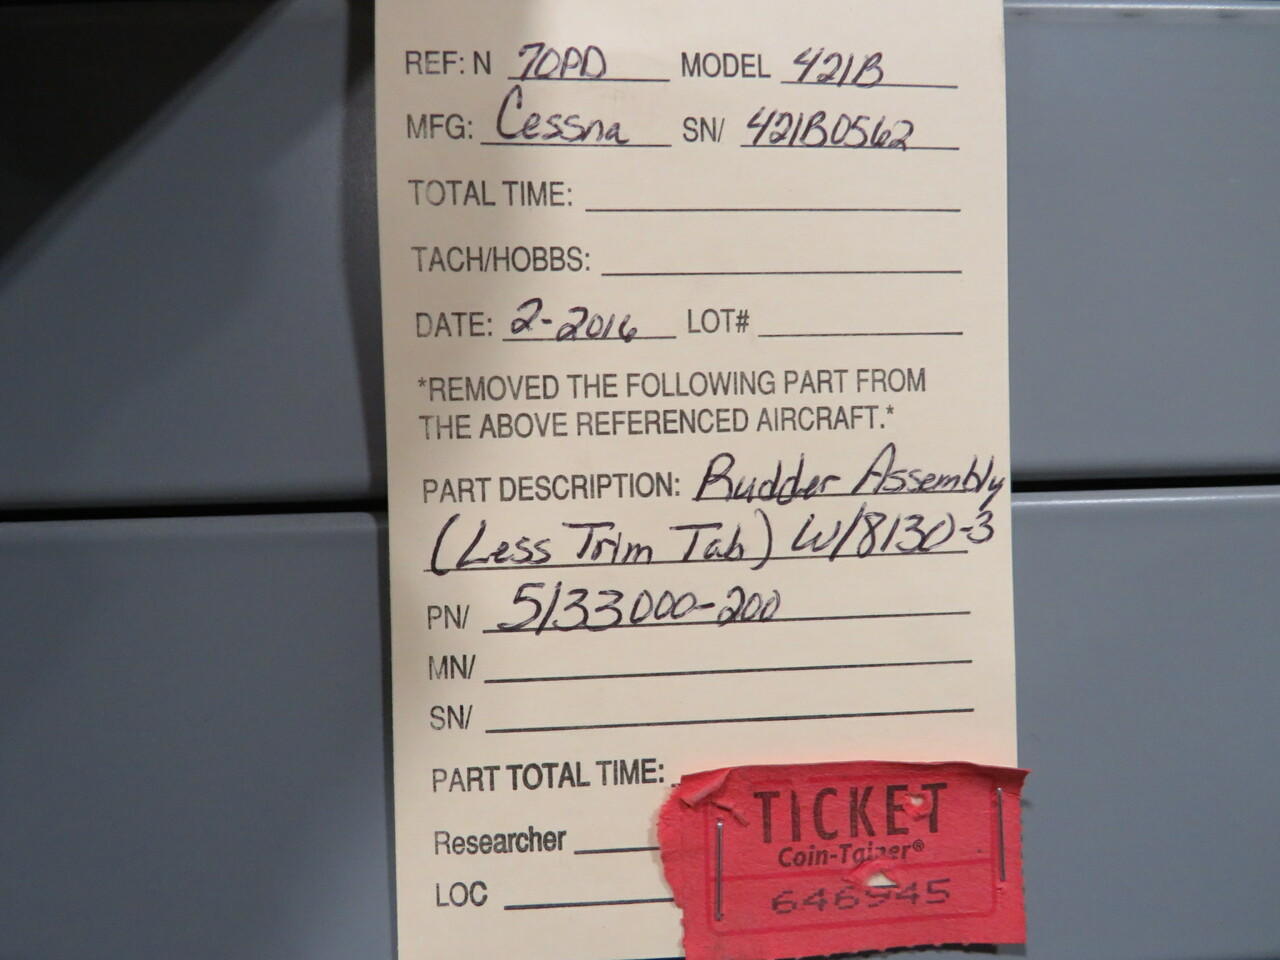 REF: N 70PD MODEL 421B
MFG: Cessna SN/ 421B0562
TOTAL TIME:
TACH/HOBBS:
DATE: 2-2016 LOT#
*REMOVED THE FOLLOWING PART FROM
THE ABOVE REFERENCED AIRCRAFT.*
PART DESCRIPTION: Rudder Assembly
(Less Trim Tab) W/8130-3
PN/ 5133000-200
MN/
SN/
PART TOTAL TIME:
Researcher
LOC
TICKET
Coin-Tainer®
646945